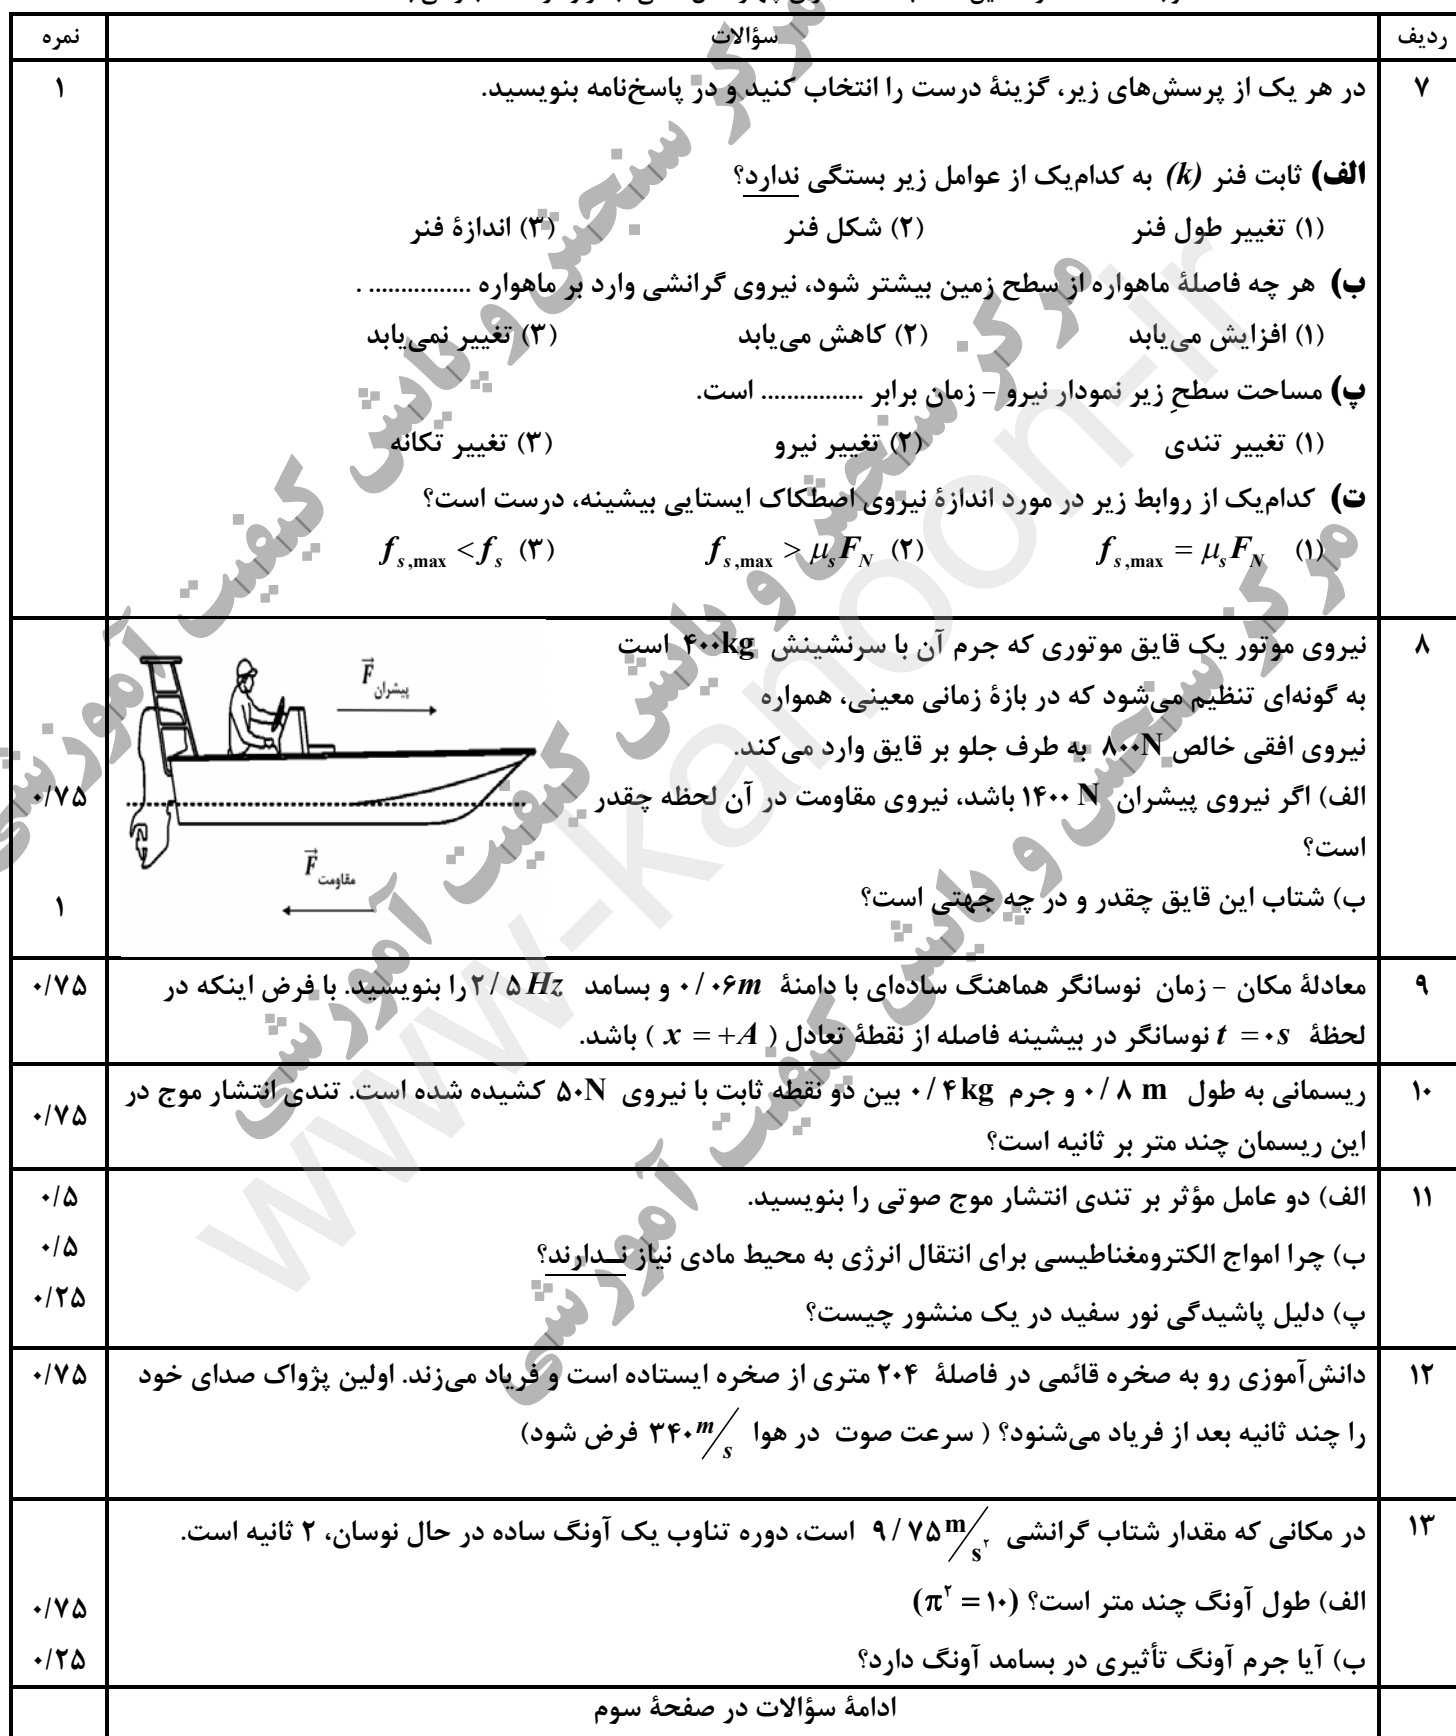 ردیف سؤالات نمره
۷ در هر یک از پرسش‌های زیر، گزینهٔ درست را انتخاب کنید و در پاسخ‌نامه بنویسید. ۱
الف) ثابت فنر (k) به کدام‌یک از عوامل زیر بستگی ندارد؟
(۱) تغییر طول فنر (۲) شکل فنر (۳) اندازهٔ فنر
ب) هر چه فاصلهٔ ماهواره از سطح زمین بیشتر شود، نیروی گرانشی وارد بر ماهواره ................ .
(۱) افزایش می‌یابد (۲) کاهش می‌یابد (۳) تغییر نمی‌یابد
پ) مساحت سطحِ زیر نمودار نیرو – زمان برابر ................ است.
(۱) تغییر تندی (۲) تغییر نیرو (۳) تغییر تکانه
ت) کدام‌یک از روابط زیر در مورد اندازهٔ نیروی اصطکاک ایستایی بیشینه، درست است؟
(۱) f_{s,max} = μ_s F_N (۲) f_{s,max} > μ_s F_N (۳) f_{s,max} < f_s
۸ نیروی موتور یک قایق موتوری که جرم آن با سرنشینش ۴۰۰kg است
به گونه‌ای تنظیم می‌شود که در بازهٔ زمانی معینی، همواره
نیروی افقی خالص ۸۰۰N به طرف جلو بر قایق وارد می‌کند.
الف) اگر نیروی پیشران ۱۴۰۰ N باشد، نیروی مقاومت در آن لحظه چقدر ۰/۷۵
است؟
ب) شتاب این قایق چقدر و در چه جهتی است؟ ۱
F پیشران
F مقاومت
۹ معادلهٔ مکان – زمان نوسانگر هماهنگ ساده‌ای با دامنهٔ ۰/۰۶m و بسامد ۲/۵Hz را بنویسید. با فرض اینکه در ۰/۷۵
لحظهٔ t = ۰s نوسانگر در بیشینه فاصله از نقطهٔ تعادل ( x = +A ) باشد.
۱۰ ریسمانی به طول ۰/۸ m و جرم ۰/۴kg بین دو نقطه ثابت با نیروی ۵۰N کشیده شده است. تندی انتشار موج در ۰/۷۵
این ریسمان چند متر بر ثانیه است؟
۱۱ الف) دو عامل مؤثر بر تندی انتشار موج صوتی را بنویسید. ۰/۵
ب) چرا امواج الکترومغناطیسی برای انتقال انرژی به محیط مادی نیاز نــدارند؟ ۰/۵
پ) دلیل پاشیدگی نور سفید در یک منشور چیست؟ ۰/۲۵
۱۲ دانش‌آموزی رو به صخره قائمی در فاصلهٔ ۲۰۴ متری از صخره ایستاده است و فریاد می‌زند. اولین پژواک صدای خود ۰/۷۵
را چند ثانیه بعد از فریاد می‌شنود؟ ( سرعت صوت در هوا ۳۴۰ m/s فرض شود)
۱۳ در مکانی که مقدار شتاب گرانشی ۹/۷۵ m/s² است، دوره تناوب یک آونگ ساده در حال نوسان، ۲ ثانیه است.
الف) طول آونگ چند متر است؟ (π² = ۱۰) ۰/۷۵
ب) آیا جرم آونگ تأثیری در بسامد آونگ دارد؟ ۰/۲۵
ادامهٔ سؤالات در صفحهٔ سوم
مرکز سنجش و پایش کیفیت آموزشی
مرکز سنجش و پایش کیفیت آموزشی
مرکز سنجش و پایش کیفیت آموزشی
www-kanoon-ir